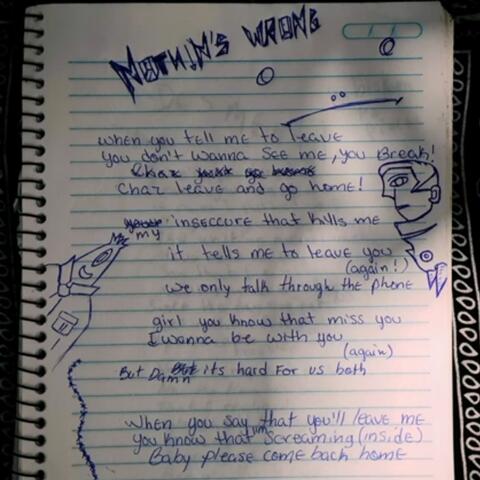 NOTHIN'S WRONG
when you tell me to leave
you don't wanna see me, you Break!
Char
Char leave and go home!
my inseccure that kills me
it tells me to leave you
(again!)
we only talk through the phone
girl you know that miss you
I wanna be with you
(again)
But Damn its hard For us both
When you say that you'll leave me
you know that im screaming (inside)
Baby please come back home